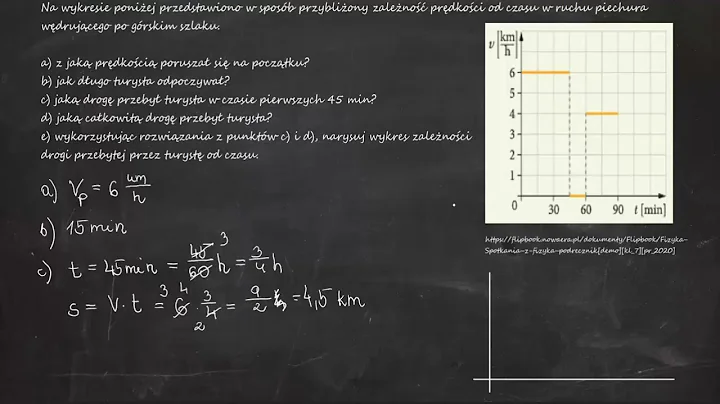 Na wykresie poniżej przedstawiono w sposób przybliżony zależność prędkości od czasu w ruchu piechura
wędrującego po górskim szlaku.
a) z jaką prędkością poruszał się na początku?
b) jak długo turysta odpoczywał?
c) jaką drogę przebył turysta w czasie pierwszych 45 min?
d) jaką całkowitą drogę przebył turysta?
e) wykorzystując rozwiązania z punktów c) i d), narysuj wykres zależności
drogi przebytej przez turystę od czasu.
a) Vp = 6 km/h
b) 15 min
c) t = 45 min = 45/60 h = 3/4 h
3
s = V · t = 6 · 3/4 = 9/2 = 4,5 km
3
2
v [km/h]
6
5
4
3
2
1
0 30 60 90 t [min]
https://flipbook.nowaera.pl/dokumenty/Flipbook/Fizyka-
Spotkania-z-fizyka-podrecznik[demo][kl_7][pr_2020]